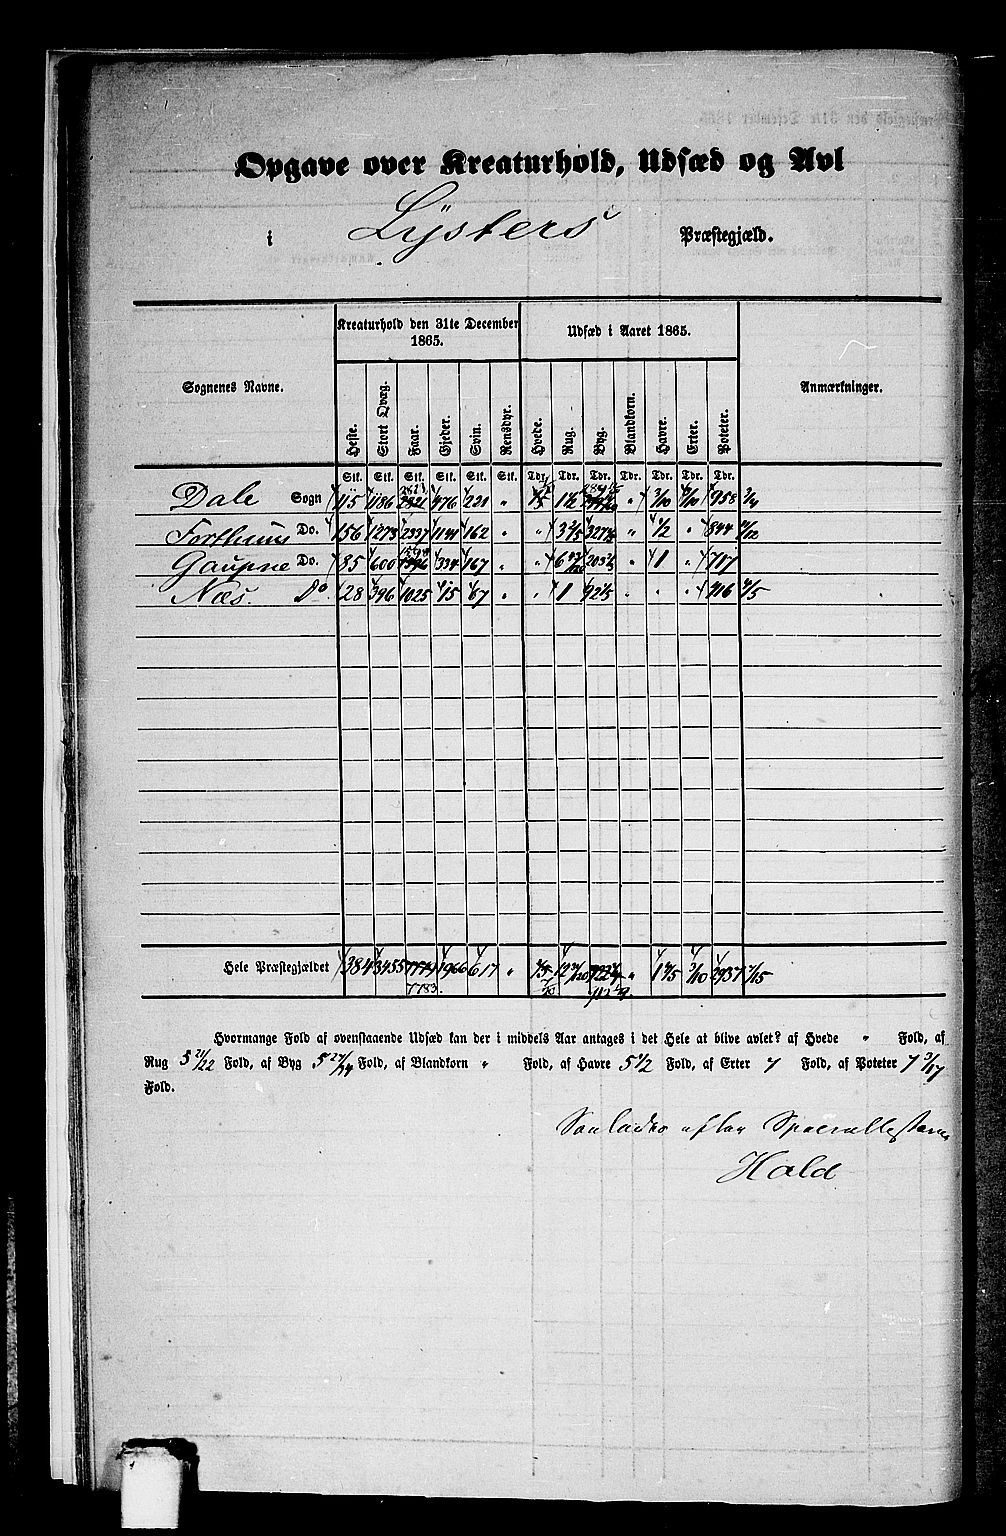 Opgave over Kreaturhold, Udsæd og Avl
i Lÿsters Præstegjæld.
Sognenes Navne. Kreaturhold den 31te December 1865. Udsæd i Aaret 1865. Anmærkninger.
Heste. Stort Qvæg. Faar. Gjeder. Svin. Rensdyr. Hvede. Rug. Byg. Blandkorn. Havre. Erter. Poteter.
Stk. Stk. Stk. Stk. Stk. Stk. Tdr. Tdr. Tdr. Tdr. Tdr. Tdr. Tdr.
Dale Sogn 115 1186 2821 476 221 " 1/5 3/20 1/20 958 3/4
Forthuns Do. 156 1273 2337 1141 162 " " 3 2/5 " 1/2 " 844
Gaupne Do. 85 600 334 167 " " 6 " 1 " 717
Næs. Do. 28 396 1025 15 67 " " 1 92 " " " 416 4/5
Hele Præstegjældet 384 3455 7779 7783. 1966 617 " " 2937
Hvormange Fold af ovenstaaende Udsæd kan der i middels Aar antages i det Hele at blive avlet? af Hvede " Fold, af
Rug 5 21/22 Fold, af Byg 5 Fold, af Blandkorn " Fold, af Havre 5 1/2 Fold, af Erter 7 Fold, af Poteter 7 3/17
Fold.
Saaledes efter Speciallisterne
Hald